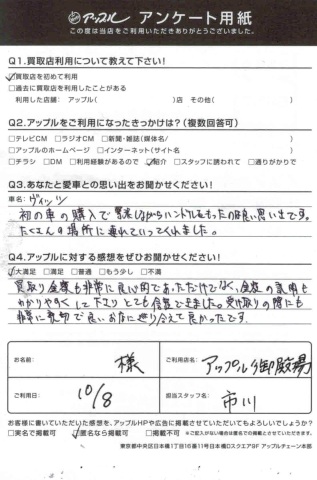 アップル アンケート用紙
この度は当店をご利用いただきありがとうございました。
Q1.買取店利用について教えて下さい!
☑買取店を初めて利用
□過去に買取店を利用したことがある
利用した店舗: アップル( )店 その他( )
Q2.アップルをご利用になったきっかけは?(複数回答可)
□テレビCM □ラジオCM □新聞・雑誌(媒体名/ )
□アップルのホームページ □インターネット(サイト名 )
□チラシ □DM □利用経験があるので ☑紹介 □スタッフに誘われて □通りがかりで
Q3.あなたと愛車との思い出をお聞かせください!
車名: ヴィッツ
初の車の購入で緊張しながらハンドルをもったの良い思い出です。
たくさんの場所に連れていってくれました。
Q4.アップルに対する感想をぜひお聞かせください!
☑大満足 □満足 □普通 □もう少し □不満
買取り金額も非常に良心的であっただけでなく、金額の説明も
わかりやすくして下さりとても信頼できました。受け取りの際にも
非常に親切で良いお店に巡り会えて良かったです。
お名前: 様
ご利用店名: アップル御殿場
ご利用日: 10/8
担当スタッフ名: 市川
お客様に書いていただいた感想を、アップルHPや広告に掲載させていただいてもよろしいでしょうか?
□実名で掲載可 ☑匿名なら掲載可 □掲載不可 ※ご記入がない場合は匿名での掲載とさせていただきます。
東京都中央区日本橋1丁目16番11号日本橋Dスクエア9F アップルチェーン本部